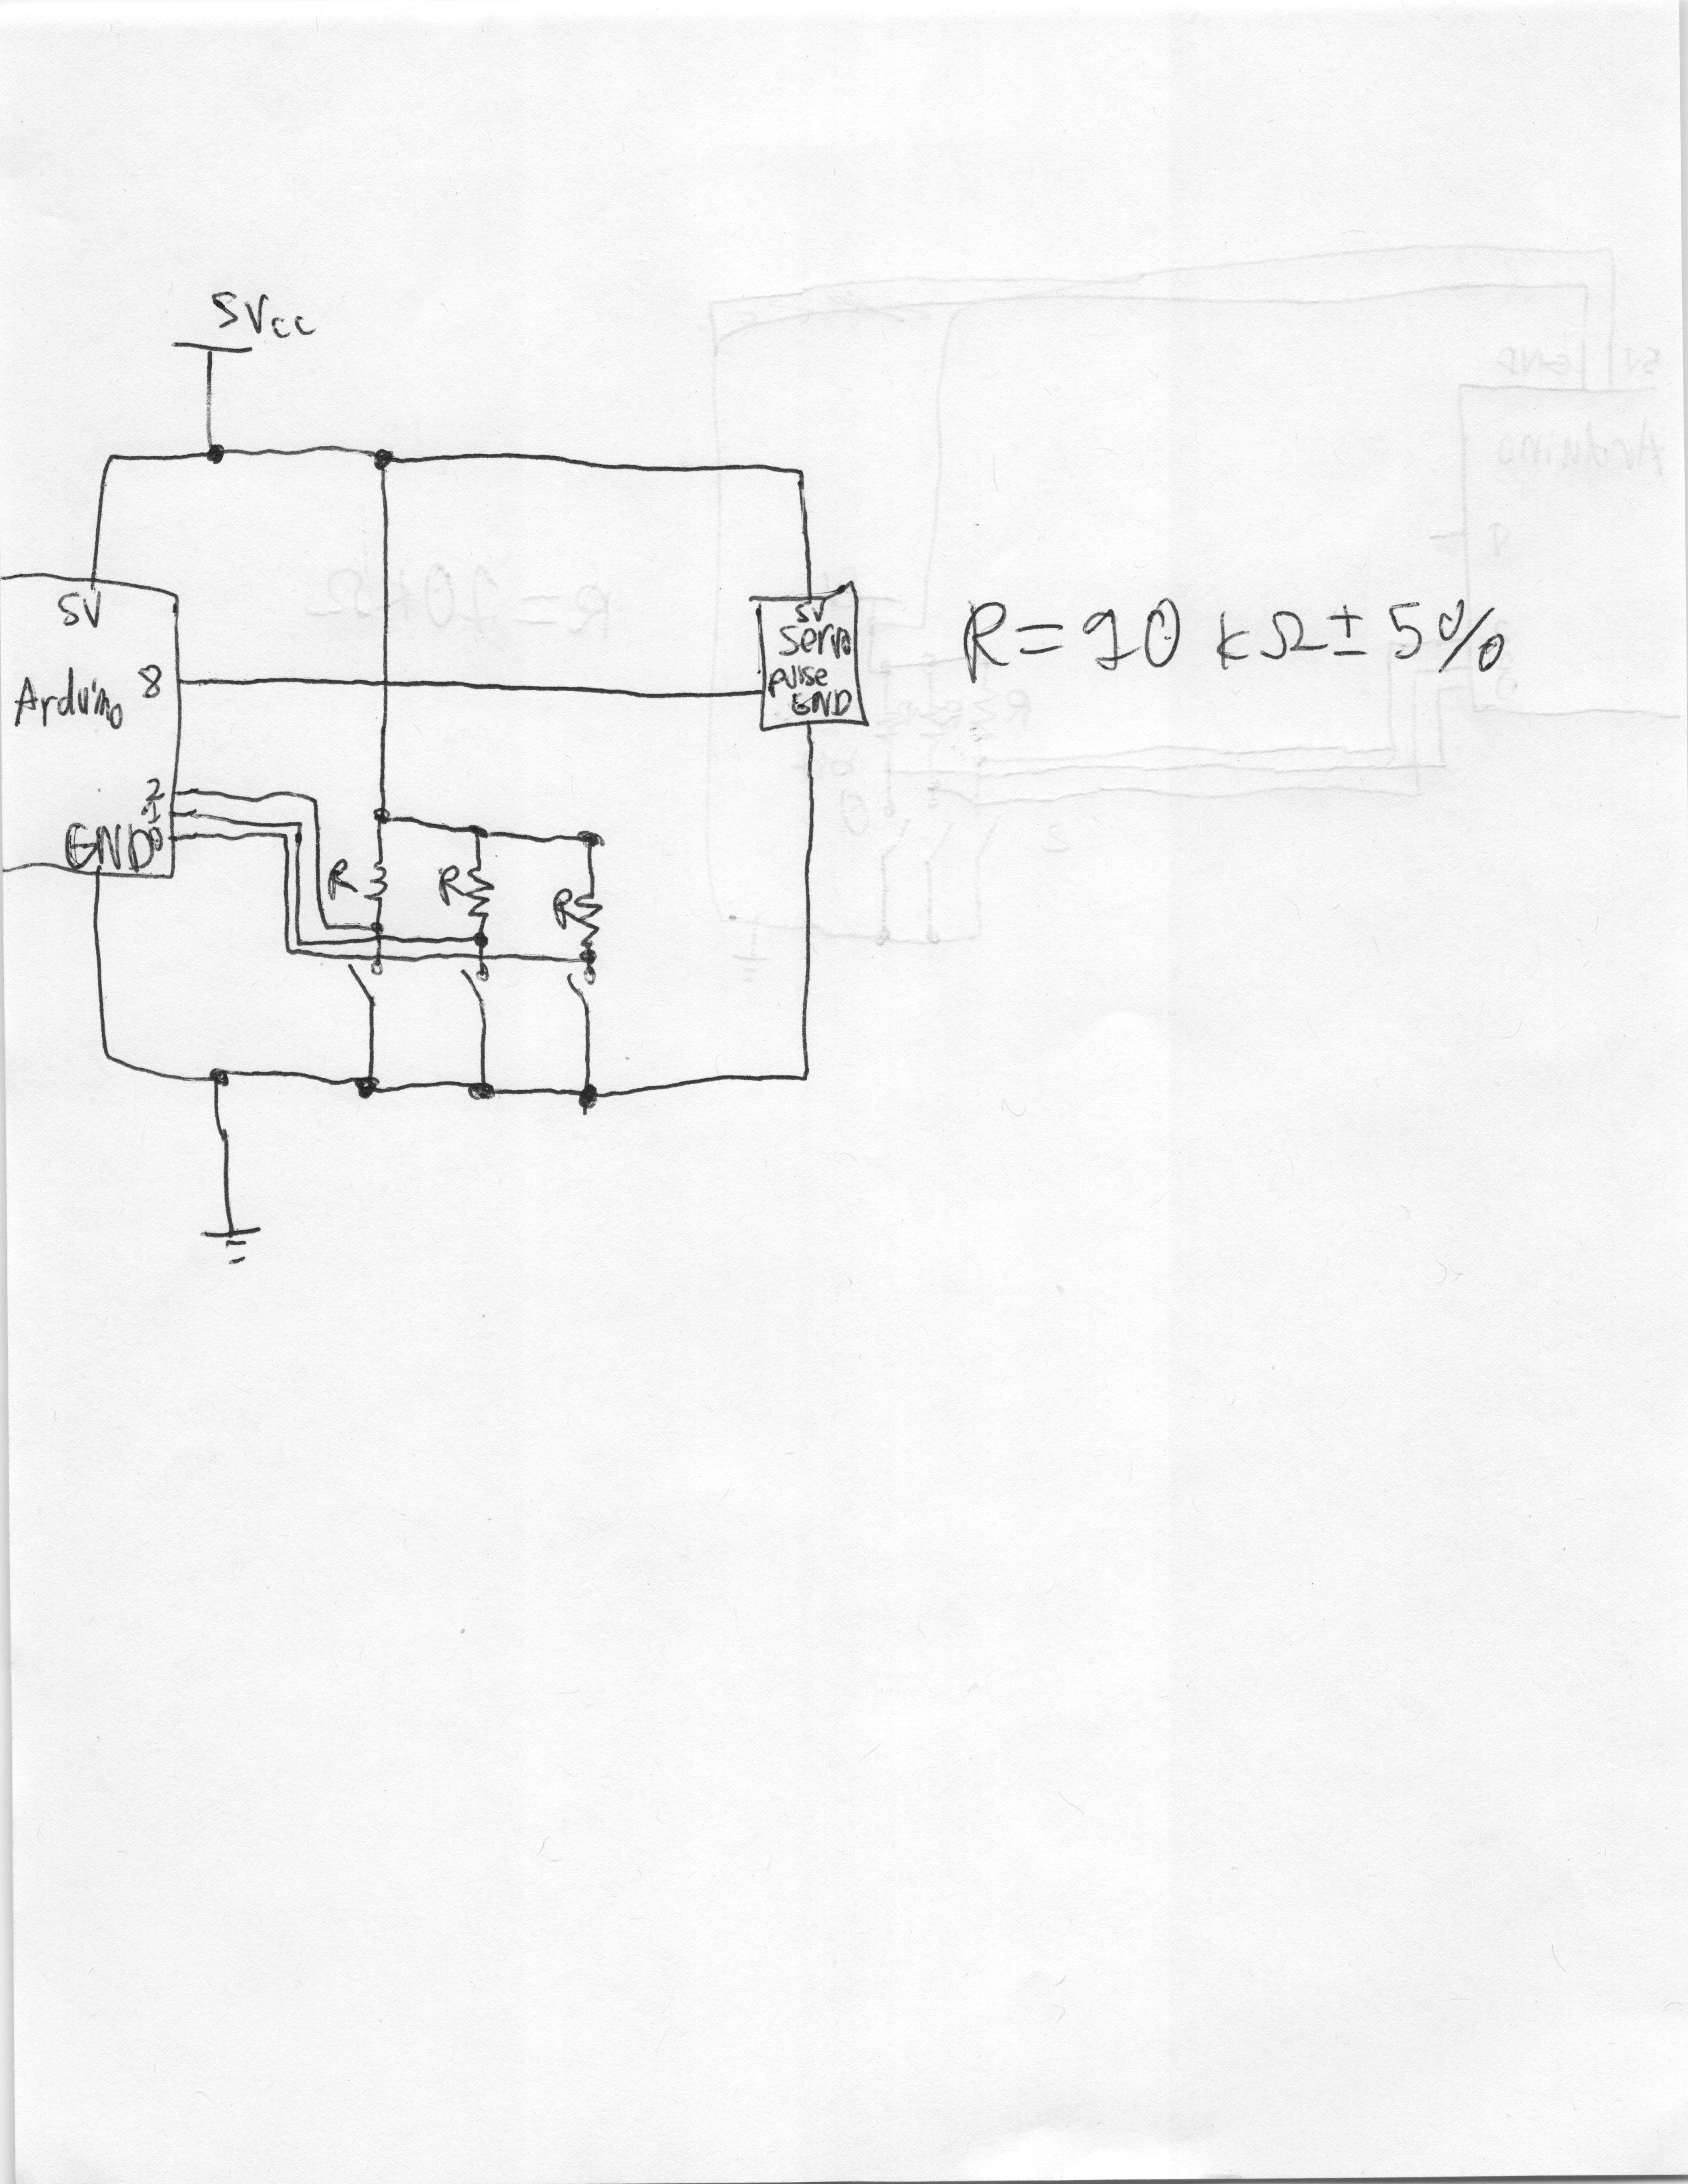 5Vcc
5V
Arduino 8
2
1
GND 0
R
R
R
5V
Servo
pulse
GND
R = 10 kΩ ± 5%